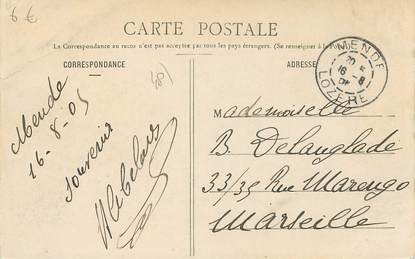 6 €
CARTE POSTALE
La Correspondance au recto n'est pas acceptée par tous les pays étrangers. (Se renseigner à la Poste)
CORRESPONDANCE
ADRESSE
MENDE
16 - 8
LOZÈRE
Mende
16-8-05
Souvenir
Mademoiselle
B. Delanglade
33/35 Rue Marengo
Marseille